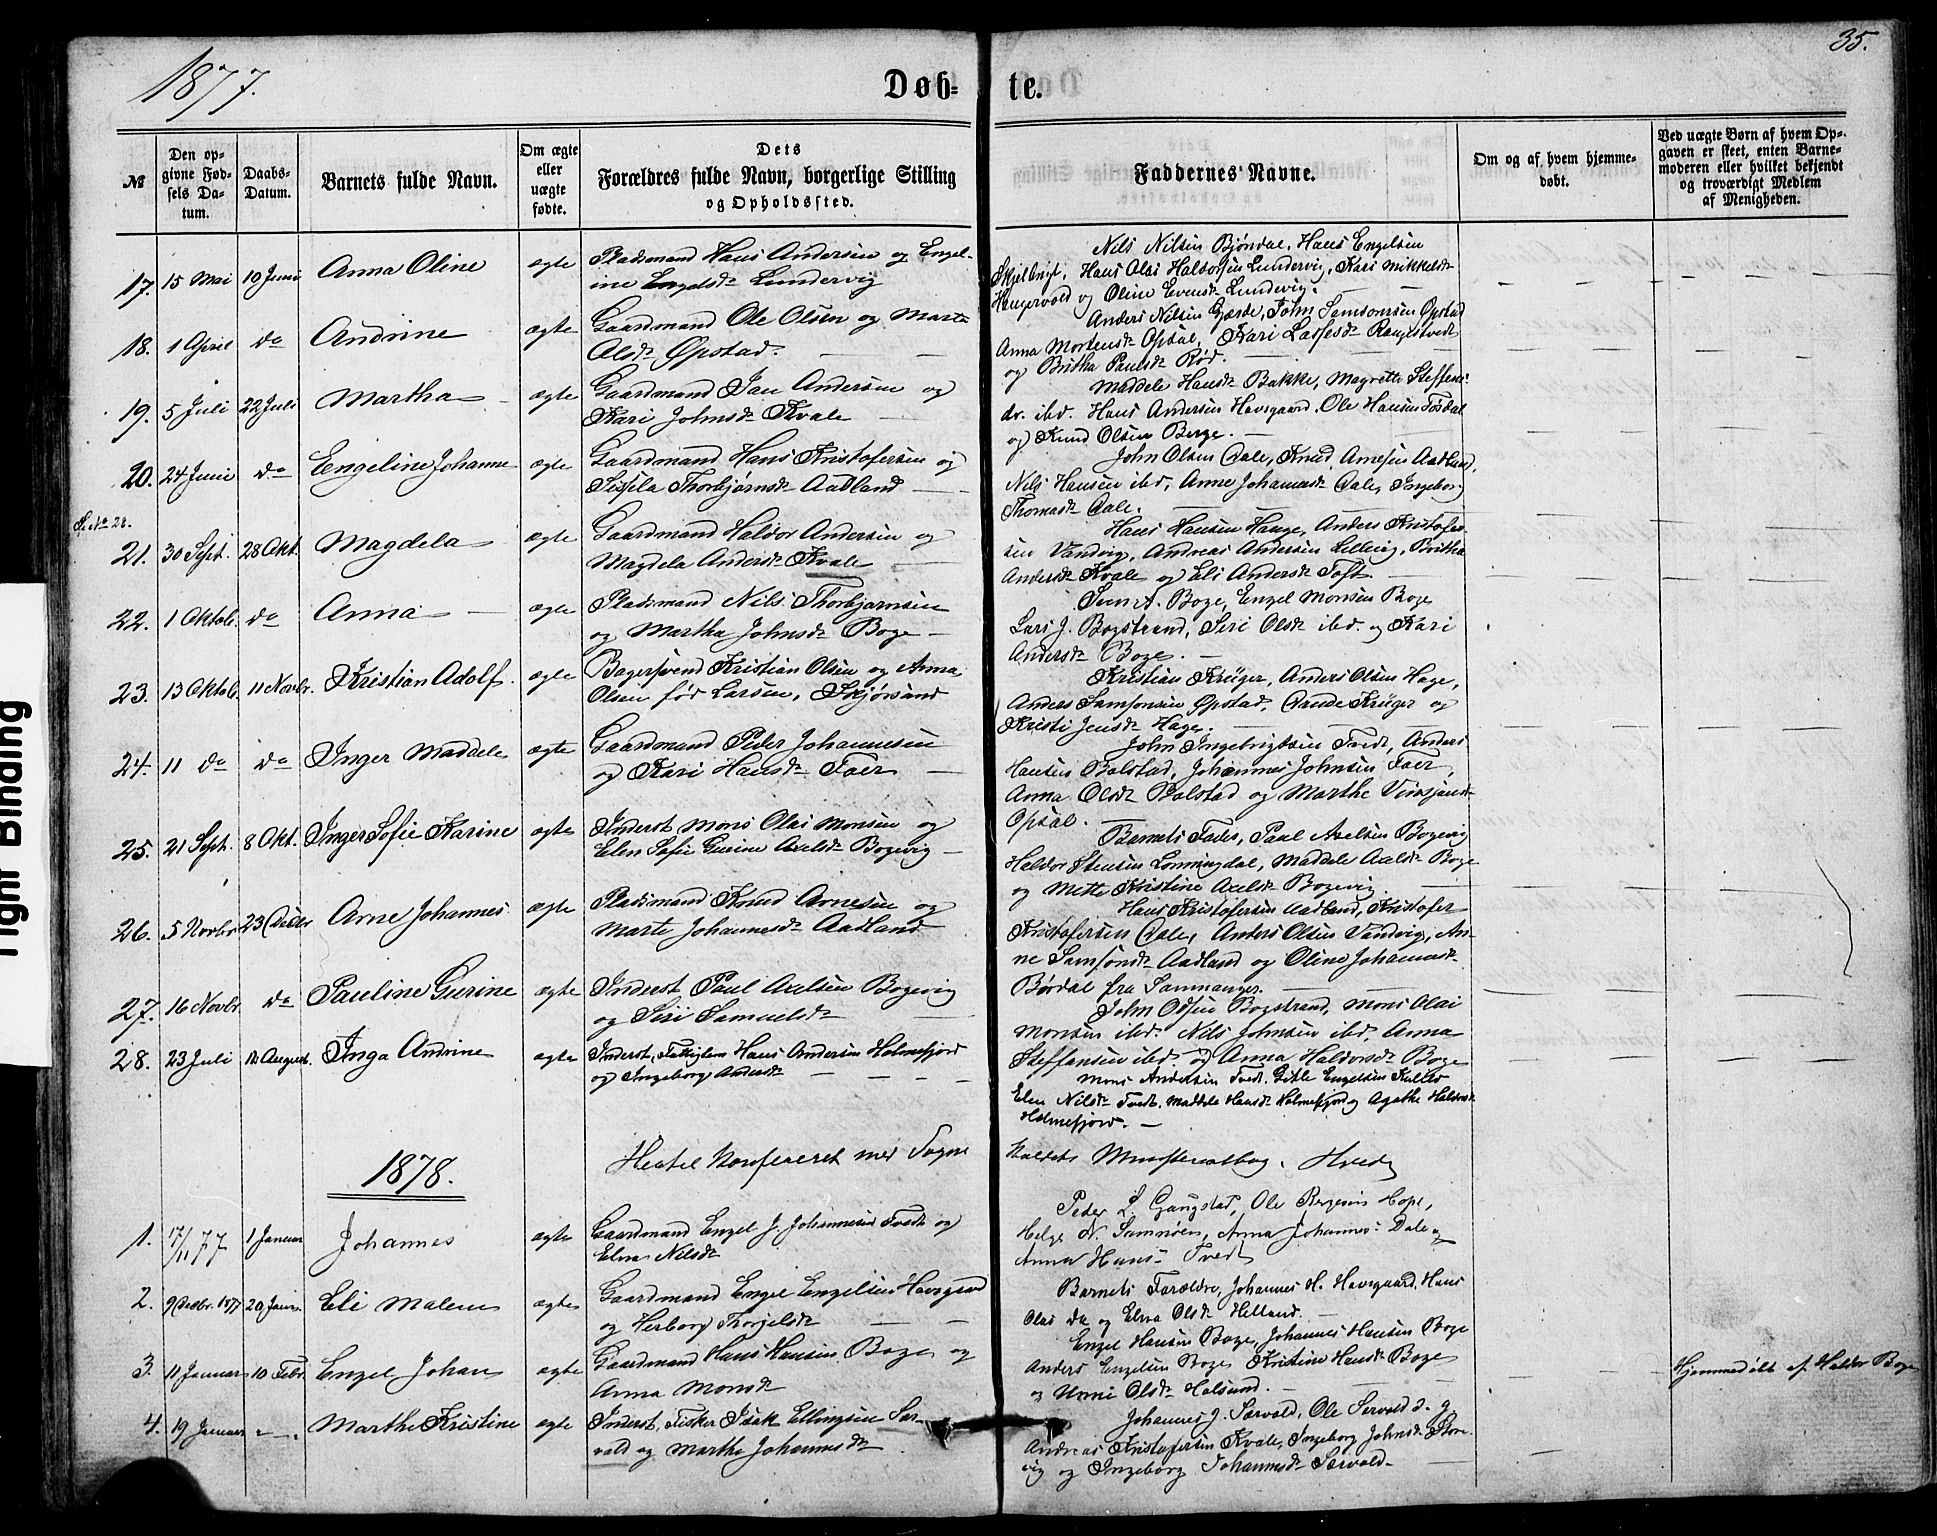 1877.
Døb-
te.
35.
№
Den op-
givne Fød-
sels Da-
tum.
Daabs-
Datum.
Barnets fulde Navn.
Om ægte
eller
uægte
fødte.
Dets
Forældres fulde Navn, borgerlige Stilling
og Opholdssted.
Faddernes Navne.
Om og af hvem hjemme-
døbt.
Ved uægte Børn af hvem Op-
gaven er skeet, enten Barne-
moderen eller hvilket bekjendt
og troværdigt Medlem
af Menigheden.
17. 15 Mai 10 Juni Anna Oline ægte Pladsmand Hans Andersen og Engel-
ine Engelsdt Lundervig
Nils Nilsen Bjöndal, Hans Engelsen
Hans Olai Haldorsen Lundervig, Kari Mikkelsdt
Haugervold og Oline Evensdt Lundevig.
18. 1 April do Andrine ægte Gaardmand Ole Olsen og Marte
Olsdt Øpstad.
Anders Nilsen Gjærde, John Samsonsen Øpstad
Anna Mortensdt Opsal, Kari Lassesdt Rangestvedt
og Britha Paulsdt Rød.
19. 5 Juli 22 Juli Martha ægte Gaardmand Jan Andersen og
Kari Johnsdt Kvale
Maddele Hansdt Bakke, Magrethe Steffens-
dr. ibd. Hans Andersen Havsgaard, Ole Hansen Tøsdal
og Knud Olsen Berge.
20. 24 Juni do Engeline Johanne ægte Gaardmand Hans Kristofersen og
Sissela Thorbjørnsdt Aadland
John Olsen Dale, Knud Arnesen Aadland,
Nils Hansen ibd, Anne Johannesdt Dale, Ingeborg
Thomasdt Dale.
Se No 28.
21. 30 Sept. 28 Okt. Magdela ægte Gaardmand Haldor Andersen og
Magdela Andersdt Kvale
Hans Hansen Hauge, Anders Kristofer-
sen Vandvig, Andreas Andersen Lillevig, Britha
Andersdt Kvale og Eli Andersdt Toft.
22. 1 Oktob. do Anna ægte Pladsmand Nils Thorbjørnsen
og Martha Johnsdt Boge
Sven A. Boge, Engel Monsen Boge
Lars J. Bogstrand, Siri Olsdt ibd. og Kari
Andersdt Boge.
23. 13 Oktob. 11 Novbr. Kristian Adolf. ægte Bagersvend Kristian Olsen og Anna
Olsen fød Larsen, Skjørsand
Kristian Krüger, Anders Olsen Hage,
Anders Samsonsen Øpstad, Krüger og
Kristi Jensdt Hage.
24. 11 do do Inger Maddele ægte Gaardmand Peder Johannesen
og Kari Hansdt Faer
John Ingebrigtsen Tvedt, Anders
Hansen Bolstad, Johannes Johnsen Faer,
Anna Olsdt Bolstad og Marthe
Opsal.
25. 21 Sept. 8 Okt. Inger Sofie Karine ægte Inderst Mons Olai Monsen og
Elen Sofie Gurine Axelsdt Bogevig
Barnets Fader, Paul Axelsen Bogevig
Haldor Stensen Lønningdal, Maddele Axelsdt Boge
og Mette Kristine Axelsdt Bogevig.
26. 5 Novbr 23 Decbr Arne Johannes ægte Pladsmand Knud Arnesen og
Marte Johannesdt Aadland
Hans Kristofersen Aadland, Kristofer
Kristofersen Dale, Anders Olsen Vandvig, An-
ne Samsonsdt Aadland og Oline Johannesdt
Børdal fra Sammanger.
27. 16 Novbr. do Pauline Gurine ægte Inderst Paul Axelsen Bogevig
og Siri Samuelsdt
John Odsen Bogstrand, Mons Olai
Monsen ibd. Nils Johnsen ibd, Anna
Steffensen ibd. og Anna Haldorsdt Boge
28. 23 Juli 12 August. Inga Andrine ægte Inderst, Fattiglem Hans Andersen Holmefjord
og Ingeborg Andersdt
Mons Andersen Tvedt, Gitle Engelsen
Elen Nilsdt Tvedt, Maddele Hansdt Holmefjord og Agathe Haldorsdt
Holmefjord.
Hertil Konfereret med Sogne
kaldets Ministerialbog.
1878.
1. 17/11 77 1 Januar Johannes ægte Gaardmand Engel J. Johannesen Tvedt og
Elna Nilsdt
Peder L. Gangstad, Ole Bergesen Hope,
Helge N. Samnøen, Anna Johannes- Dale og
Anna Hans- Tvedt
2. 9 Decbr. 1877 20 Janr. Eli Malene ægte Gaardmand Engel Engelsen Havsgaard
og Herborg Thorgelsdt
Barnets Forældre, Johannes H. Havsgaard, Hans
Olai do og Elna Olsdt Helland.
3. 11 Januar 10 Febr. Engel Johan ægte Gaardmand Hans Hansen Boge og
Anna Monsdt
Engel Hansen Boge, Johannes Hansen Boge
Anders Engelsen Boge Kristine Hansdt Boge
og Unni Olsdt Holsund.
Hjemmedøbt af Haldor Boge
4. 19 Januar Marthe Kristine ægte Inderst, Fisker Isak Ellingsen Sær-
vold og Marthe Johannesdt
Johannes J. Særvold, Ole Særvold d. y.
Andreas Kristofersen Kvale, Ingeborg Johnsdt Store-
vig og Ingeborg Johannesdt Særvold
Tight Binding